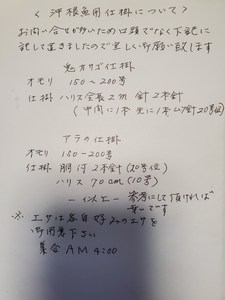 〈沖根魚用仕掛について〉
お問い合せが多いため口頭でなく下記に
記して置きましたので宜しく御願い致します
鬼カサゴ仕掛
オモリ 150〜200号
仕掛 ハリス全長2m 針2本針
アラの仕掛
オモリ 180-200号
仕掛 胴付2本針(20号位)
ハリス 70cm(10号)
参考にして頂ければ
幸いです
※ エサは各自好みのエサを
御用意下さい
集合 AM 4:00